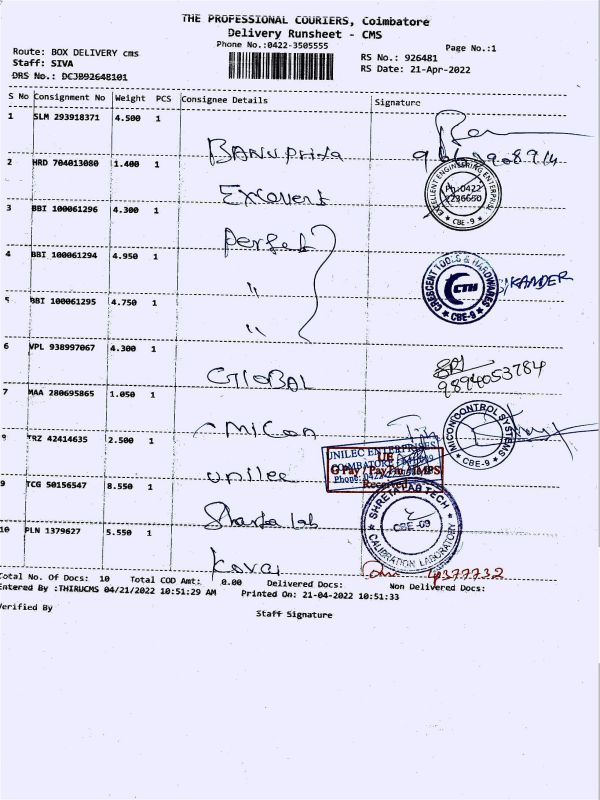 THE PROFESSIONAL COURIERS, Coimbatore
Delivery Runsheet - CMS
Phone No.:0422-3505555
Page No.:1
Route: BOX DELIVERY cms
RS No.: 926481
Staff: SIVA
RS Date: 21-Apr-2022
DRS No.: DCJB92648101
S No Consignment No Weight PCS Consignee Details Signature
1 SLM 293918371 4.500 1
BANUPRIYA
2 HRD 704013080 1.400 1
EXCELLENT ENGINEERING ENTERPRISE
Ph:0422
2236650
★ CBE-9 ★
3 BBI 100061296 4.300 1
Perfect
4 BBI 100061294 4.950 1
"
CRESCENT TOOLS & HARDWARES
CTH
★ CBE-9 ★
5 BBI 100061295 4.750 1
"
6 VPL 938997067 4.300 1
GLOBAL
9894053784
7 MAA 280695865 1.050 1
Micon
MICON CONTROL SYSTEMS
★ CBE-9 ★
8 TRZ 42414635 2.500 1
UNILEC ENTERPRISES
COIMBATORE
UE
G Pay / Pay Tm / IMPS
Phone: 0422
Received
unilec
9 TCG 50156547 8.550 1
lab
★ SHRETA LAB TECH ★
CBE-09
CALIBRATION LABORATORY
10 PLN 1379627 5.550 1
Kovai
4377732
Total No. Of Docs: 10 Total COD Amt: 0.00 Delivered Docs: Non Delivered Docs:
Entered By :THIRUCMS 04/21/2022 10:51:29 AM Printed On: 21-04-2022 10:51:33
Verified By
Staff Signature